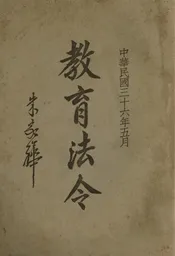 中華民國三十六年五月
教育法令
朱家驊